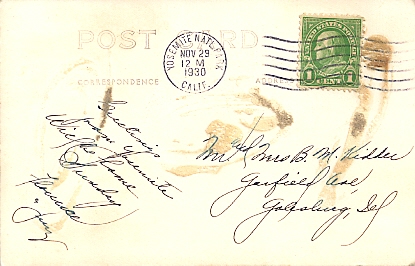 POST CARD
CORRESPONDENCE
ADDRESS
YOSEMITE NATL. PARK
NOV 29
12 M
1930
CALIF.
UNITED STATES POSTAGE
1 CENT 1
Greetings
from Yosemite
Will be home
Sunday
Florence
Mr and Mrs B. M. Kidder
Garfield Ave,
Galesburg, Ill